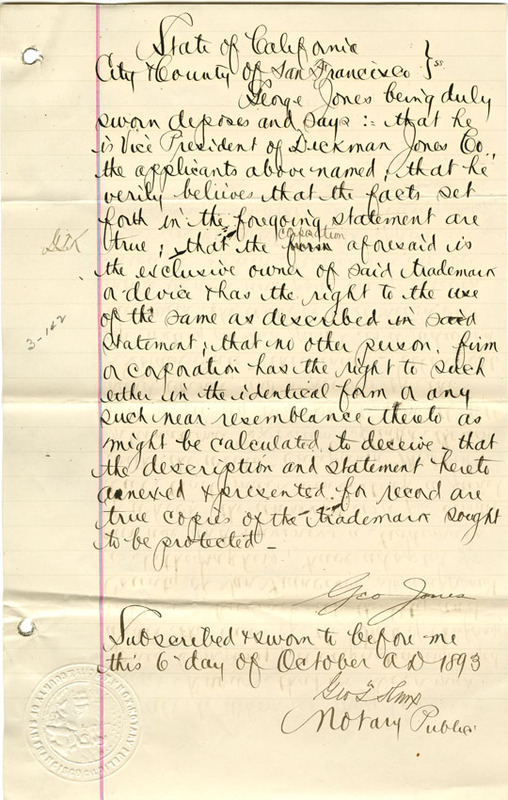 State of California
City & County of San Francisco } ss
George Jones being duly
sworn deposes and says :- that he
is Vice President of Dickman Jones Co.,
the applicants above named; that he
verily beliives that the facts set
forth in the foregoing statement are
true; that the firm corporation aforesaid is
the exclusive owner of said trademark
or device & has the right to the use
of the same as described in said
statement; that no other person, firm
or corporation have the right to such
either in the identical form or any
such near resemblance thereto as
might be calculated to deceive, that
the description and statement hereto
annexed & presented for record are
true copies of the trademark sought
to be protected -
Geo Jones
Subscribed & sworn to before me
this 6 day of October AD 1893
Geo T
Notary Public
3-142